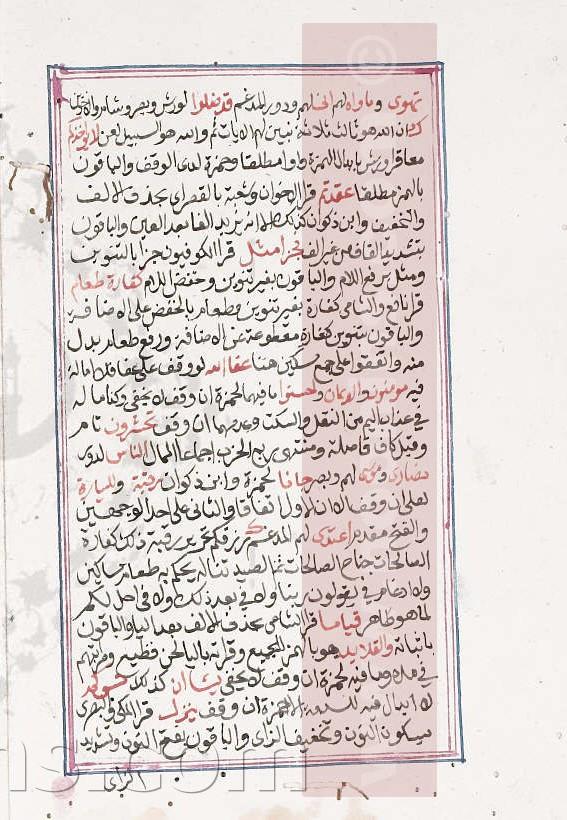 تهوى ومأواه لهم الخ لهم ودور المدغم قد ضلوا لورش وبصر وشام واخوين
ان الله هو ثالث ثلاثة نبين لهم الايات ثم والله هو السميع لعن لا يؤاخذكم
معا قرا ورش بابدال الهمزة واوا مطلقا وحمزة لدى الوقف والباقون
بالهمز مطلقا عقدتم قرا الاخوان وشعبة بالقصر اي بحذف الالف
والتخفيف وابن ذكوان كذلك الا انه يزيد الفا بعد العين والباقون
بتشديد القاف من غير الف فجزا مثل قرا الكوفيون جزا بالتنوين
ومثل برفع اللام والباقون بغير تنوين وخفض اللام كفارة طعام
قرا نافع والشامي كفارة بغير تنوين وطعام بالخفض على الاضافة
والباقون بتنوين كفارة مقطوعة عن الاضافة ورفع طعام بدل
منه واتفقوا على جمع مسكين هنا عفا الله لو وقف على عفا فلا امالة
فيه مومنون وال وحسنوا ما فيها لحمزة ان وقف لا يخفى وكذا ما له
في عذاب اليم من النقل والسكت وعدمهما ان وقف تحشرون تام
وقيل كاف فاصلة ومنتهى ربع الحزب اجماعا الممال الناس لدور
نصارى و لهم وبصر جانا لحمزة وابن ذكوان رقبة وللسيارة
لعلى ان وقف الا ان الاول اتفاقا والثاني على احد الوجهين
والفتح مقدم اعتدى لهم المدغم رزقكم تحرير رقبة ذلك كفارة
الصالحات جناح الصالحات ثم الصيد تناله يحكم به طعام مساكين
ولا ادغام في يقولون ربنا ولا في بعد ذلك ولا في احل لكم
لما هو ظاهر قياما قرا الشامي بحذف الالف بعد اليا والباقون
باثباته والقلايد هو بالهمز للجميع وقراته باليا لحن فظيع ومراتبهم
في مده وما فيه لحمزة ان وقف لا يخفى ان كذلك تسوكم
لا ابدال فيه للسبعة الا حمزة ان وقف ينزل قرا المكي والبصري
بسكون النون وتخفيف الزاي والباقون بفتح النون وتشديد
الزاي